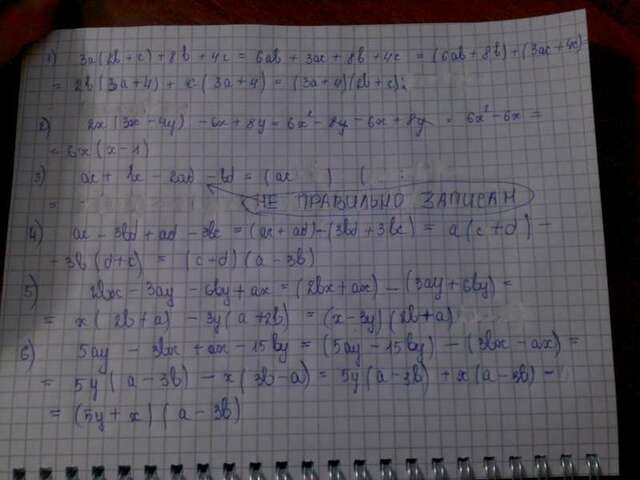 1) 3a(2b+c)+8b+4c = 6ab+3ac+8b+4c = (6ab+8b)+(3ac+4c)
= 2b(3a+4)+c(3a+4) = (3a+4)(2b+c);
2) 2x(3x-4y)-6x+8y = 6x²-8y-6x+8y = 6x²-6x =
= 6x(x-1)
3) ac+bc-2ad-bd = (ac ) (
=
НЕ ПРАВИЛЬНО ЗАПИСАН
4) ac-3bd+ad-3bc = (ac+ad)-(3bd+3bc) = a(c+d)-
-3b(d+c) = (c+d)(a-3b)
5) 2bx-3ay-6by+ax = (2bx+ax)-(3ay+6by) =
= x(2b+a)-3y(a+2b) = (x-3y)(2b+a)
6) 5ay-3bx+ax-15by = (5ay-15by)-(3bx-ax) =
= 5y(a-3b)-x(3b-a) = 5y(a-3b)+x(a-3b) =
= (5y+x)(a-3b)